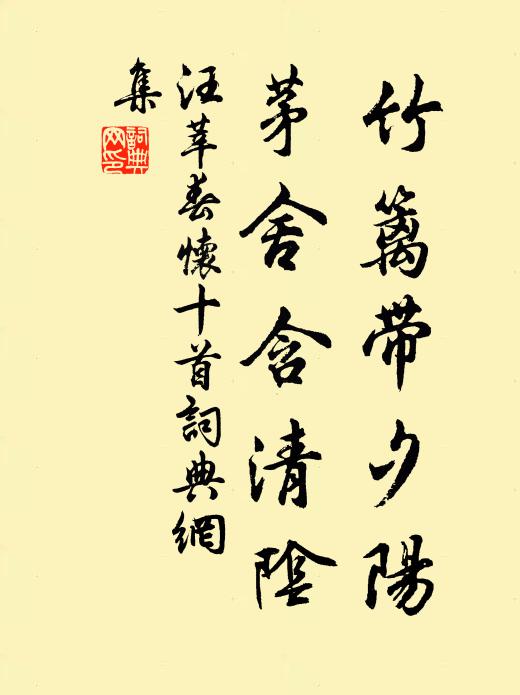 竹籬带夕陽
茅舍含清陰
汪莘春懷十首詞典網
集
詞典網印